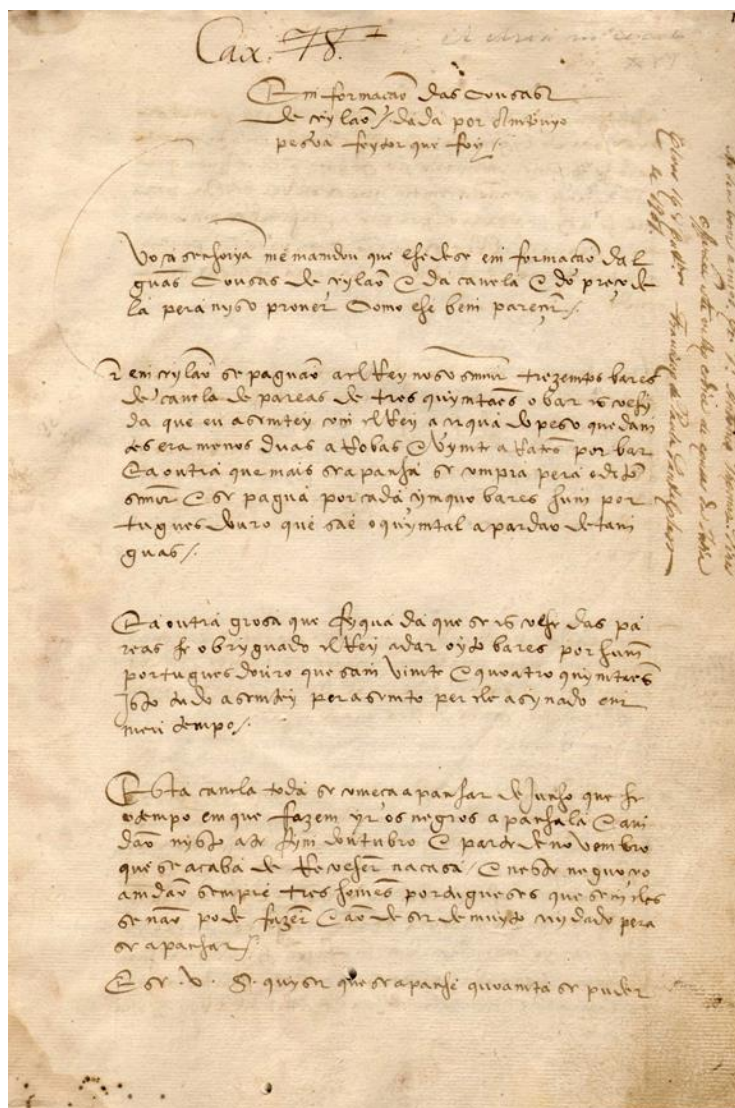 Cax. 78.
Emformação das Cousas
de ceylão / dada por Antonyo
pesoa feytor que foy /.
vosa senhorya me mandou que lhe dese emformação dal
guas Cousas de ceylão E da canela E do preço de
la pera nyso prover Como lhe bem parecer /.
em ceylão se paguão a el Rey noso senhor trezemtos bares
de canela de pareas de tres quymtaes o bar escolhy
da que eu asemtey com el Rey a arqua do peso que dam
tes era menos duas aRobas E vymte aRates por bar
E a outra que mais se apanha se compra pera o dito
senhor E se pagua por cada cimquo bares hum por
tugues douro que sae o quymtal a pardao de tam
guas /.
E a outra grosa que fyqua da que se escolhe das pa
reas he obryguado el Rey a dar oyto bares por hum
portugues douro que sam vimte E quoatro quymtaes
Isto tudo asemtey por asemto per ele asynado em
meu tempo /.
Esta canela toda se comeca apanhar de Junho que he
o tempo em que fazem yr os negros apanhala E an
dão nysto ate fym doutubro E parte de novembro
que se acaba de Recolher na casa / E neste neguoceo
amdão sempre tres homes portugueses que sem eles
se não pode fazer E ão de ser de muyto cuydado pera
se apanhar /.
E se . V . S . quyser que se apanhe quoamta se puder